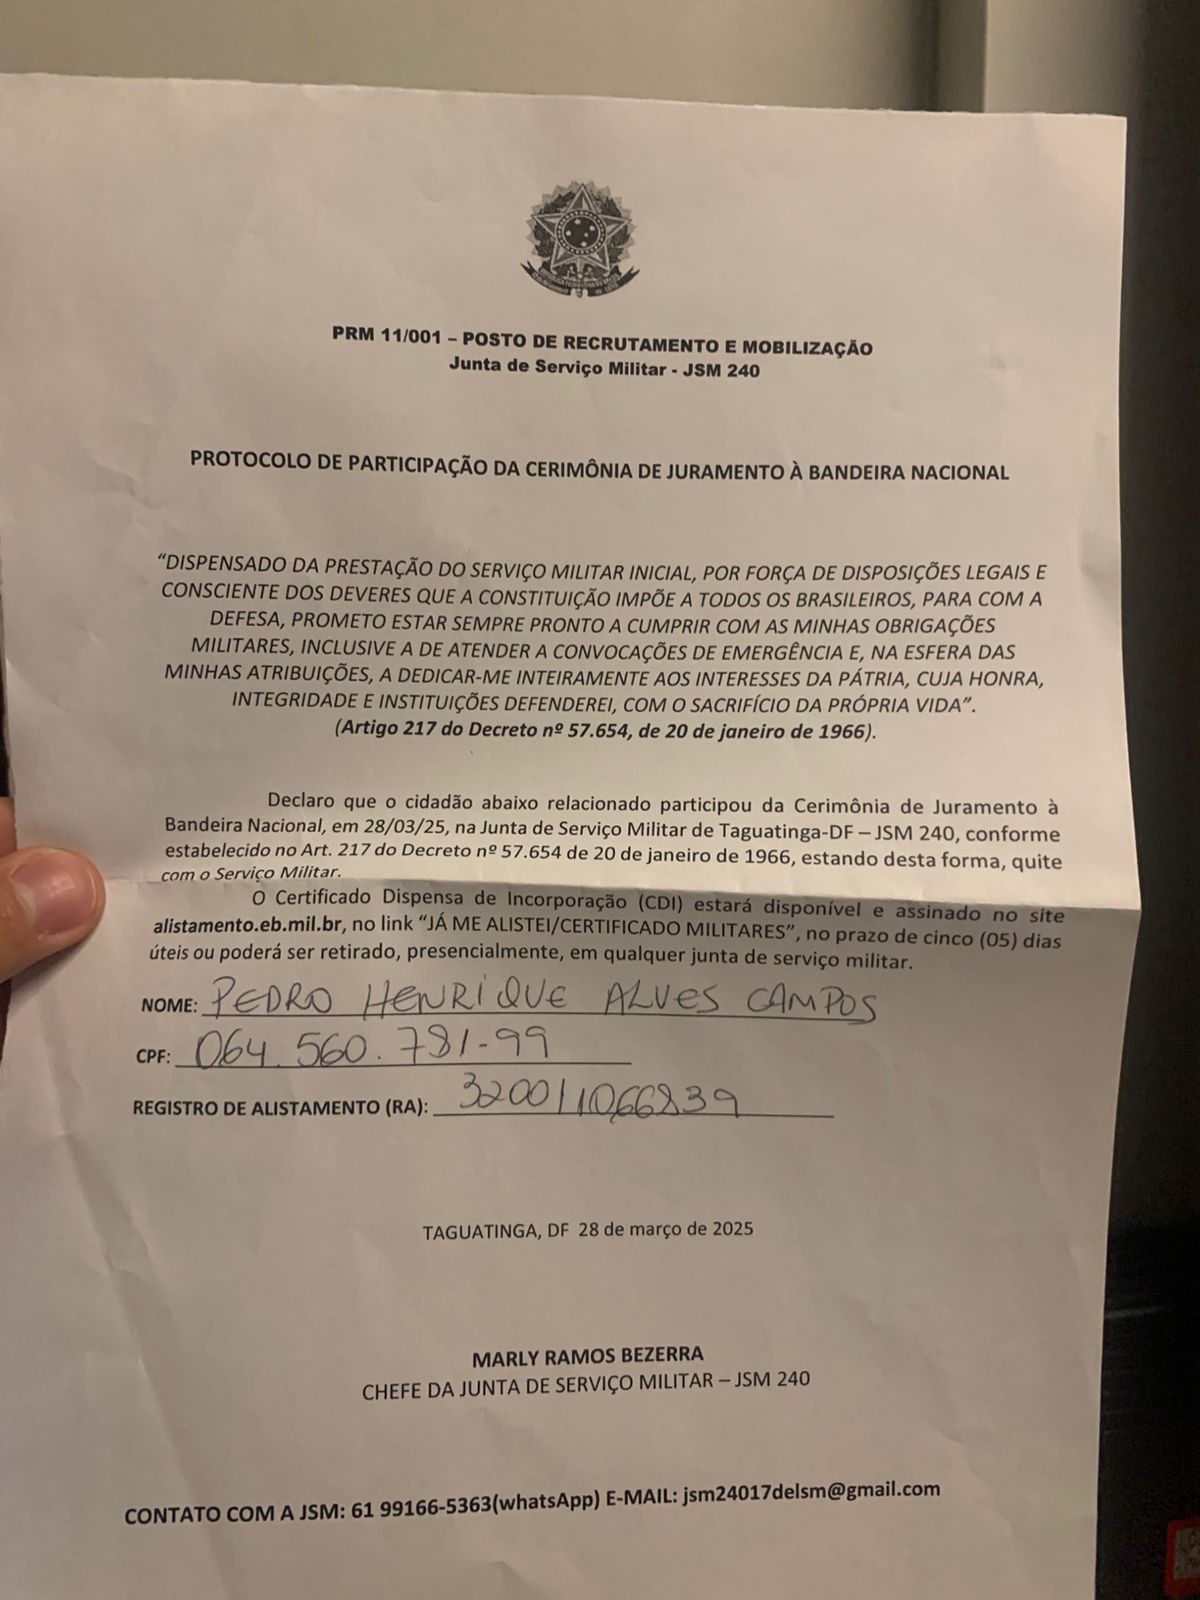 PRM 11/001 – POSTO DE RECRUTAMENTO E MOBILIZAÇÃO
Junta de Serviço Militar - JSM 240
PROTOCOLO DE PARTICIPAÇÃO DA CERIMÔNIA DE JURAMENTO À BANDEIRA NACIONAL
“DISPENSADO DA PRESTAÇÃO DO SERVIÇO MILITAR INICIAL, POR FORÇA DE DISPOSIÇÕES LEGAIS E
CONSCIENTE DOS DEVERES QUE A CONSTITUIÇÃO IMPÕE A TODOS OS BRASILEIROS, PARA COM A
DEFESA, PROMETO ESTAR SEMPRE PRONTO A CUMPRIR COM AS MINHAS OBRIGAÇÕES
MILITARES, INCLUSIVE A DE ATENDER A CONVOCAÇÕES DE EMERGÊNCIA E, NA ESFERA DAS
MINHAS ATRIBUIÇÕES, A DEDICAR-ME INTEIRAMENTE AOS INTERESSES DA PÁTRIA, CUJA HONRA,
INTEGRIDADE E INSTITUIÇÕES DEFENDEREI, COM O SACRIFÍCIO DA PRÓPRIA VIDA”.
(Artigo 217 do Decreto nº 57.654, de 20 de janeiro de 1966).
Declaro que o cidadão abaixo relacionado participou da Cerimônia de Juramento à
Bandeira Nacional, em 28/03/25, na Junta de Serviço Militar de Taguatinga-DF – JSM 240, conforme
estabelecido no Art. 217 do Decreto nº 57.654 de 20 de janeiro de 1966, estando desta forma, quite
com o Serviço Militar.
O Certificado Dispensa de Incorporação (CDI) estará disponível e assinado no site
alistamento.eb.mil.br, no link “JÁ ME ALISTEI/CERTIFICADO MILITARES”, no prazo de cinco (05) dias
úteis ou poderá ser retirado, presencialmente, em qualquer junta de serviço militar.
NOME: PEDRO HENRIQUE ALVES CAMPOS
CPF: 064.560.781-99
REGISTRO DE ALISTAMENTO (RA): 320011066839
TAGUATINGA, DF 28 de março de 2025
MARLY RAMOS BEZERRA
CHEFE DA JUNTA DE SERVIÇO MILITAR – JSM 240
CONTATO COM A JSM: 61 99166-5363(whatsApp) E-MAIL: jsm24017delsm@gmail.com